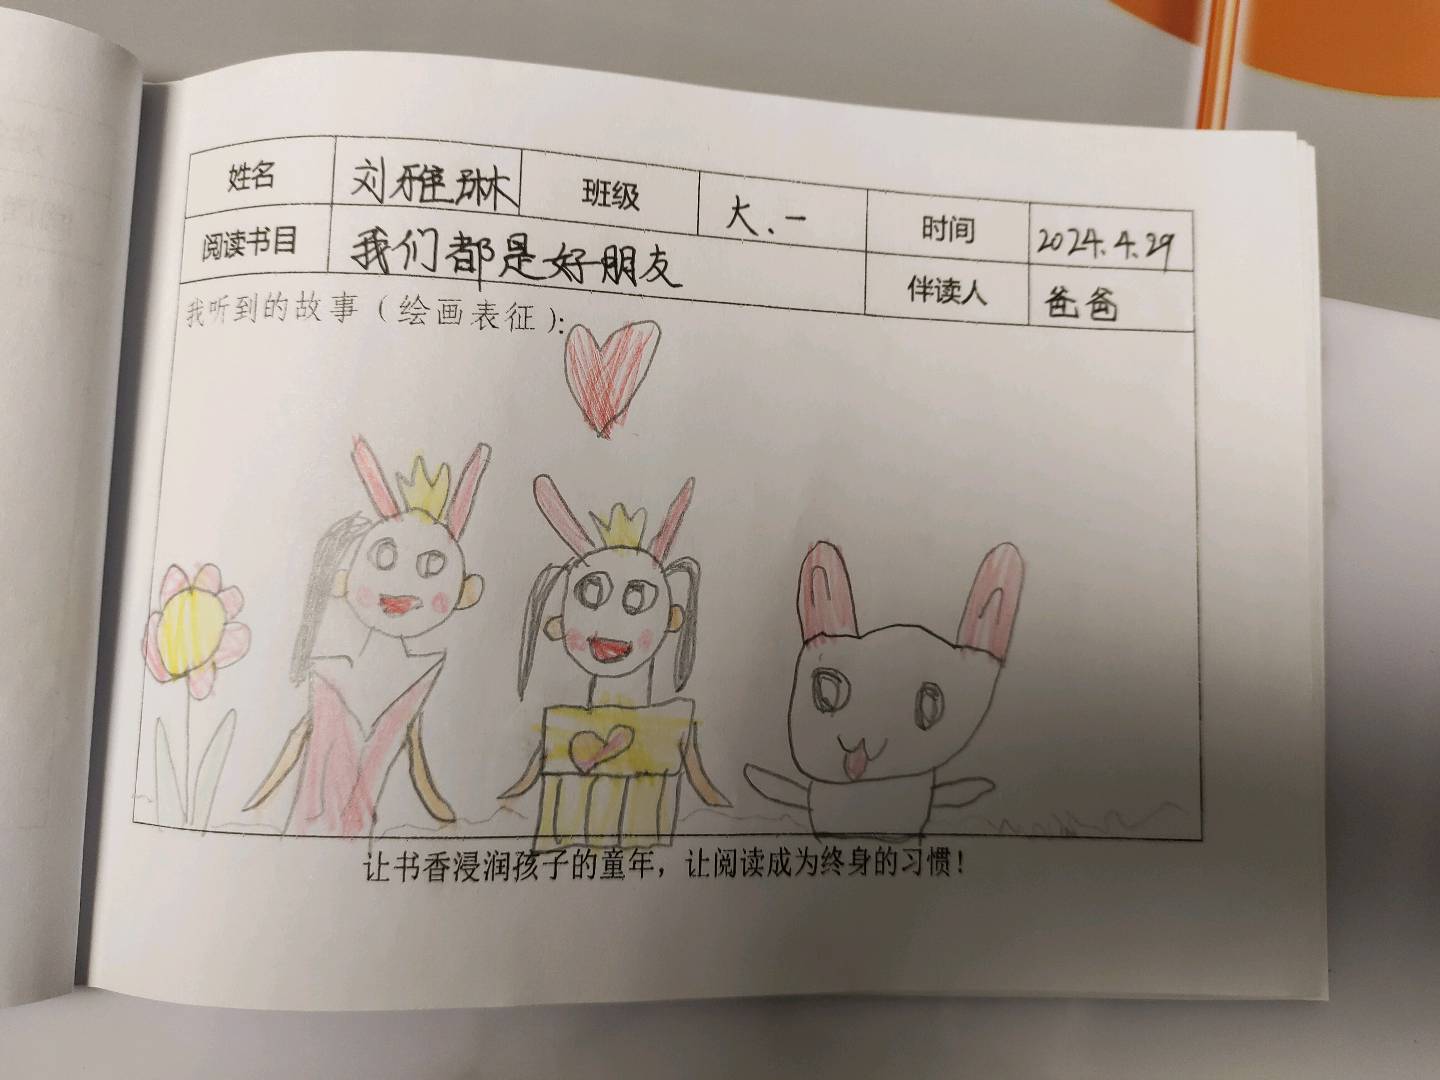 姓名 刘雅琳 班级 大.一 时间 2024.4.29
阅读书目 我们都是好朋友 伴读人 爸爸
我听到的故事（绘画表征）：
让书香浸润孩子的童年，让阅读成为终身的习惯！